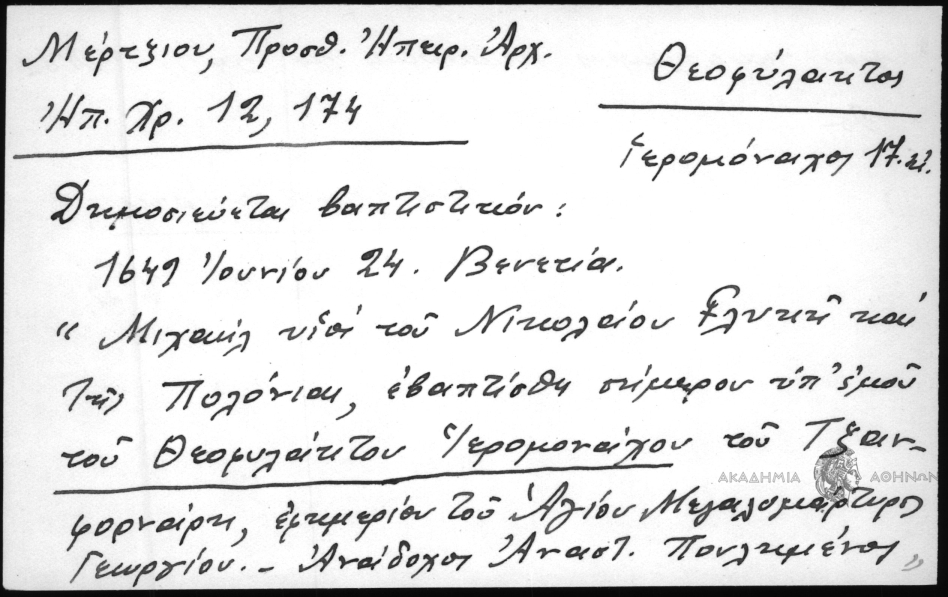 Μέρτζιου, Προσθ. Ἠπειρ. Ἀρχ.
Ἠπ. Χρ. 12, 174
Θεοφύλακτος
ἱερομόναχος 17. αἰ.
Δημοσιεύεται βαπτιστικόν:
1642 Ἰουνίου 24. Βενετία.
" Μιχαήλ υἱός τοῦ Νικολαίου Γλυκῆ καί
τῆς Πολόνιας, ἐβαπτίσθη σήμερον ὑπ' ἐμοῦ
τοῦ Θεοφυλάκτου Ἱερομονάχου τοῦ Τζαν-
φορνάρη, ἐφημερίου τοῦ Ἁγίου Μεγαλομάρτυρος
Γεωργίου. - Ἀνάδοχος Ἀναστ. Πουλημένος "
ΑΚΑΔΗΜΙΑ ΑΘΗΝΩΝ